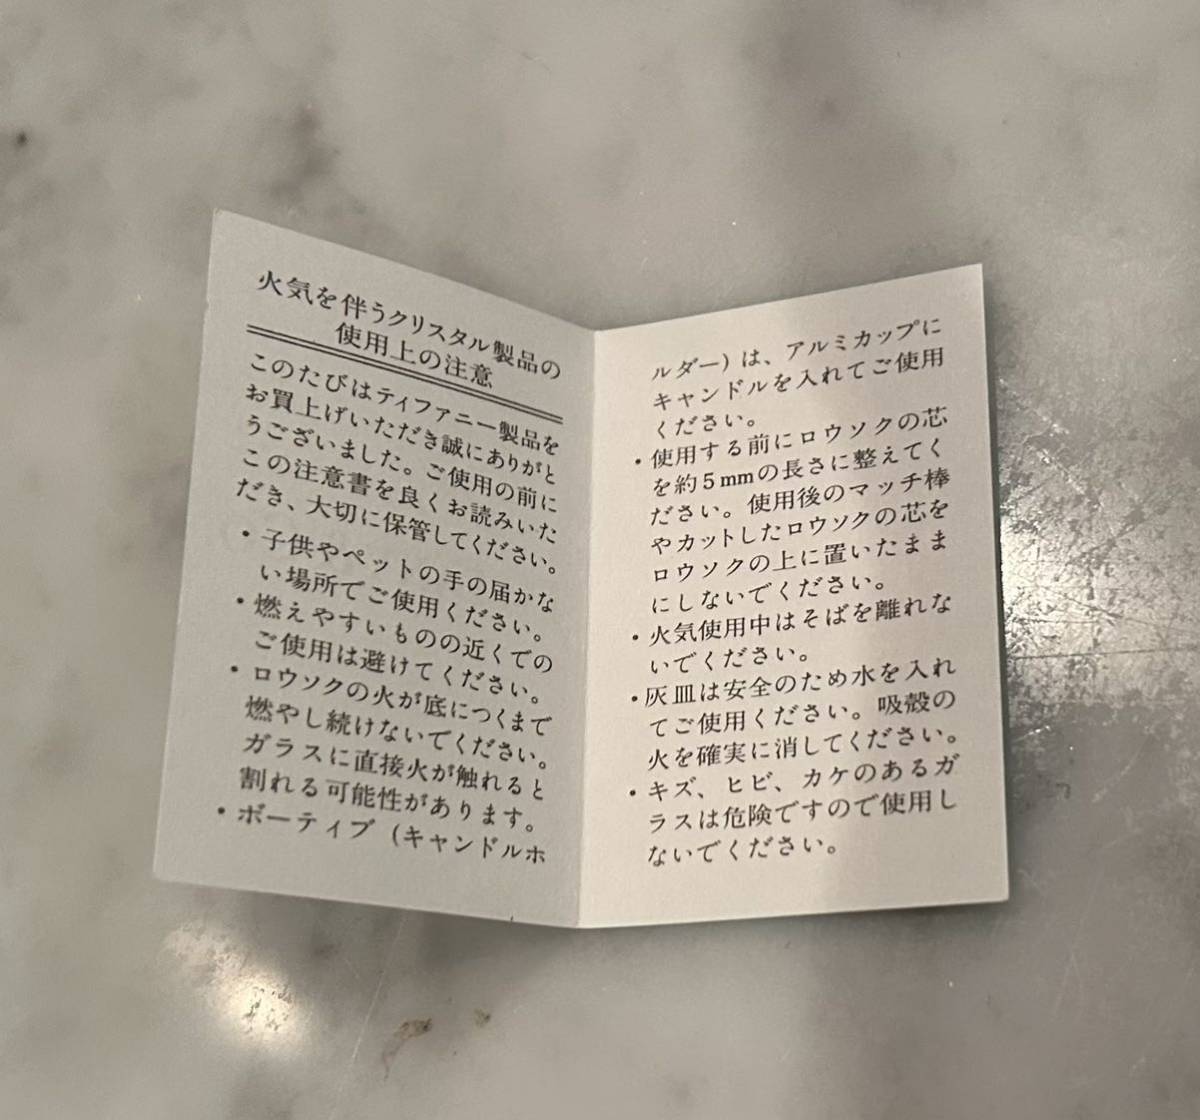 火気を伴うクリスタル製品の
使用上の注意
このたびはティファニー製品を
お買上げいただき誠にありがと
うございました。ご使用の前に
この注意書を良くお読みいた
だき、大切に保管してください。
・子供やペットの手の届かな
い場所でご使用ください。
・燃えやすいものの近くでの
ご使用は避けてください。
・ロウソクの火が底につくまで
燃やし続けないでください。
ガラスに直接火が触れると
割れる可能性があります。
・ボーティブ（キャンドルホ
ルダー）は、アルミカップに
キャンドルを入れてご使用
ください。
・使用する前にロウソクの芯
を約5mmの長さに整えてく
ださい。使用後のマッチ棒
やカットしたロウソクの芯を
ロウソクの上に置いたまま
にしないでください。
・火気使用中はそばを離れな
いでください。
・灰皿は安全のため水を入れ
てご使用ください。吸殻の
火を確実に消してください。
・キズ、ヒビ、カケのあるガ
ラスは危険ですので使用し
ないでください。